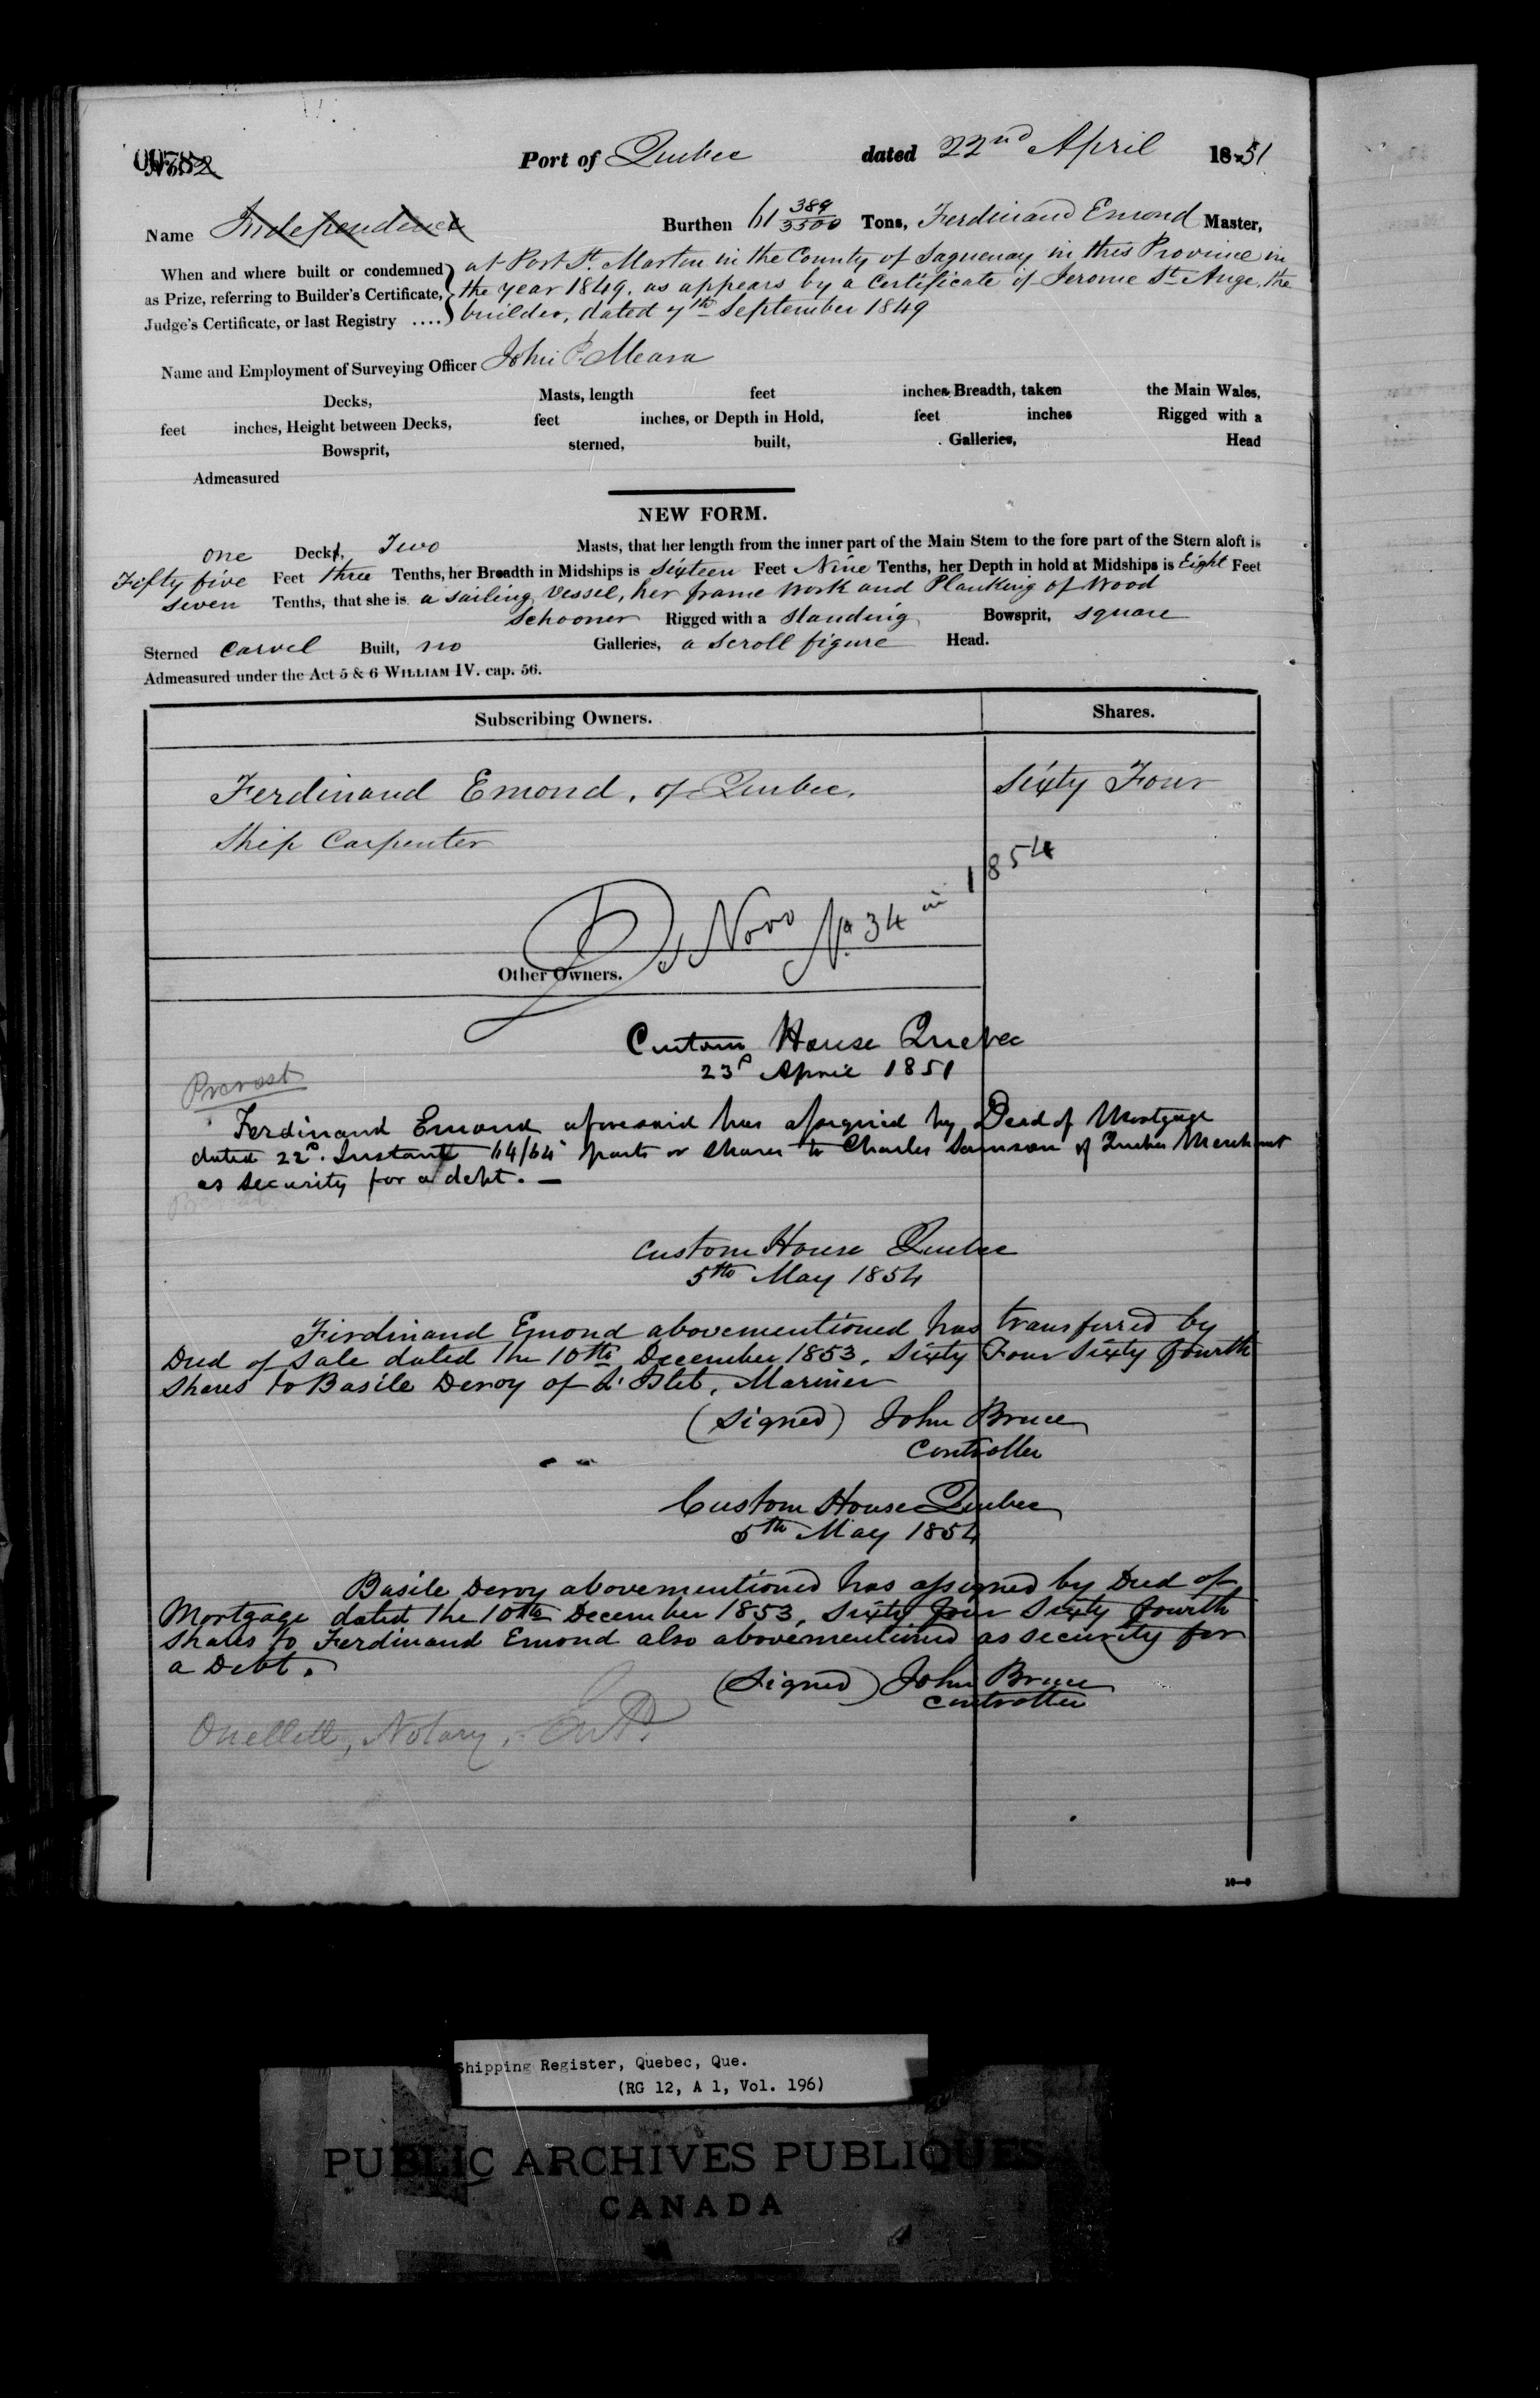 Port of Quebec dated 22nd April 1851
Name Independence Burthen 61 389/3500 Tons, Ferdinand Emond Master,
When and where built or condemned at Port St. Martin in the County of Saguenay in this Province in
as Prize, referring to Builder's Certificate, the year 1849. as appears by a Certificate of Jerome St. Ange, the
Judge's Certificate, or last Registry .... builder, dated 7th September 1849
Name and Employment of Surveying Officer John P. Meara
Decks, Masts, length feet inches Breadth, taken the Main Wales,
feet inches, Height between Decks, feet inches, or Depth in Hold, feet inches Rigged with a
Bowsprit, sterned, built, Galleries, Head
Admeasured
NEW FORM.
one Decks, Two Masts, that her length from the inner part of the Main Stem to the fore part of the Stern aloft is
Fifty five Feet three Tenths, her Breadth in Midships is Sixteen Feet Nine Tenths, her Depth in hold at Midships is Eight Feet
seven Tenths, that she is a sailing vessel, her frame work and Planking of Wood
Schooner Rigged with a Standing Bowsprit, square
Sterned Carvel Built, no Galleries, a Scroll figure Head.
Admeasured under the Act 5 & 6 WILLIAM IV. cap. 56.
Subscribing Owners. Shares.
Ferdinand Emond, of Quebec, Sixty Four
Ship Carpenter
De Novo No. 34 in 1854
Other Owners.
Custom House Quebec
23d April 1851
Provost
Ferdinand Emond aforesaid has assigned by Deed of Mortgage
dated 22d. Instant 64/64 parts or shares to Charles Samson of Quebec Merchant
as security for a debt. —
Custom House Quebec
5th May 1854
Ferdinand Emond abovementioned has transferred by
Deed of Sale dated the 10th December 1853, Sixty Four Sixty fourth
Shares to Basile Deroy of L'Islet, Mariner
(Signed) John Bruce
Controller
Custom House Quebec
5th May 1854
Basile Deroy abovementioned has assigned by Deed of
Mortgage dated the 10th December 1853, Sixty four Sixty fourth
Shares to Ferdinand Emond also abovementioned as security for
a Debt.
(Signed) John Bruce
Controller
Ouellett, Notary,
10—9
Shipping Register, Quebec, Que.
(RG 12, A 1, Vol. 196)
PUBLIC ARCHIVES PUBLIQUES
CANADA